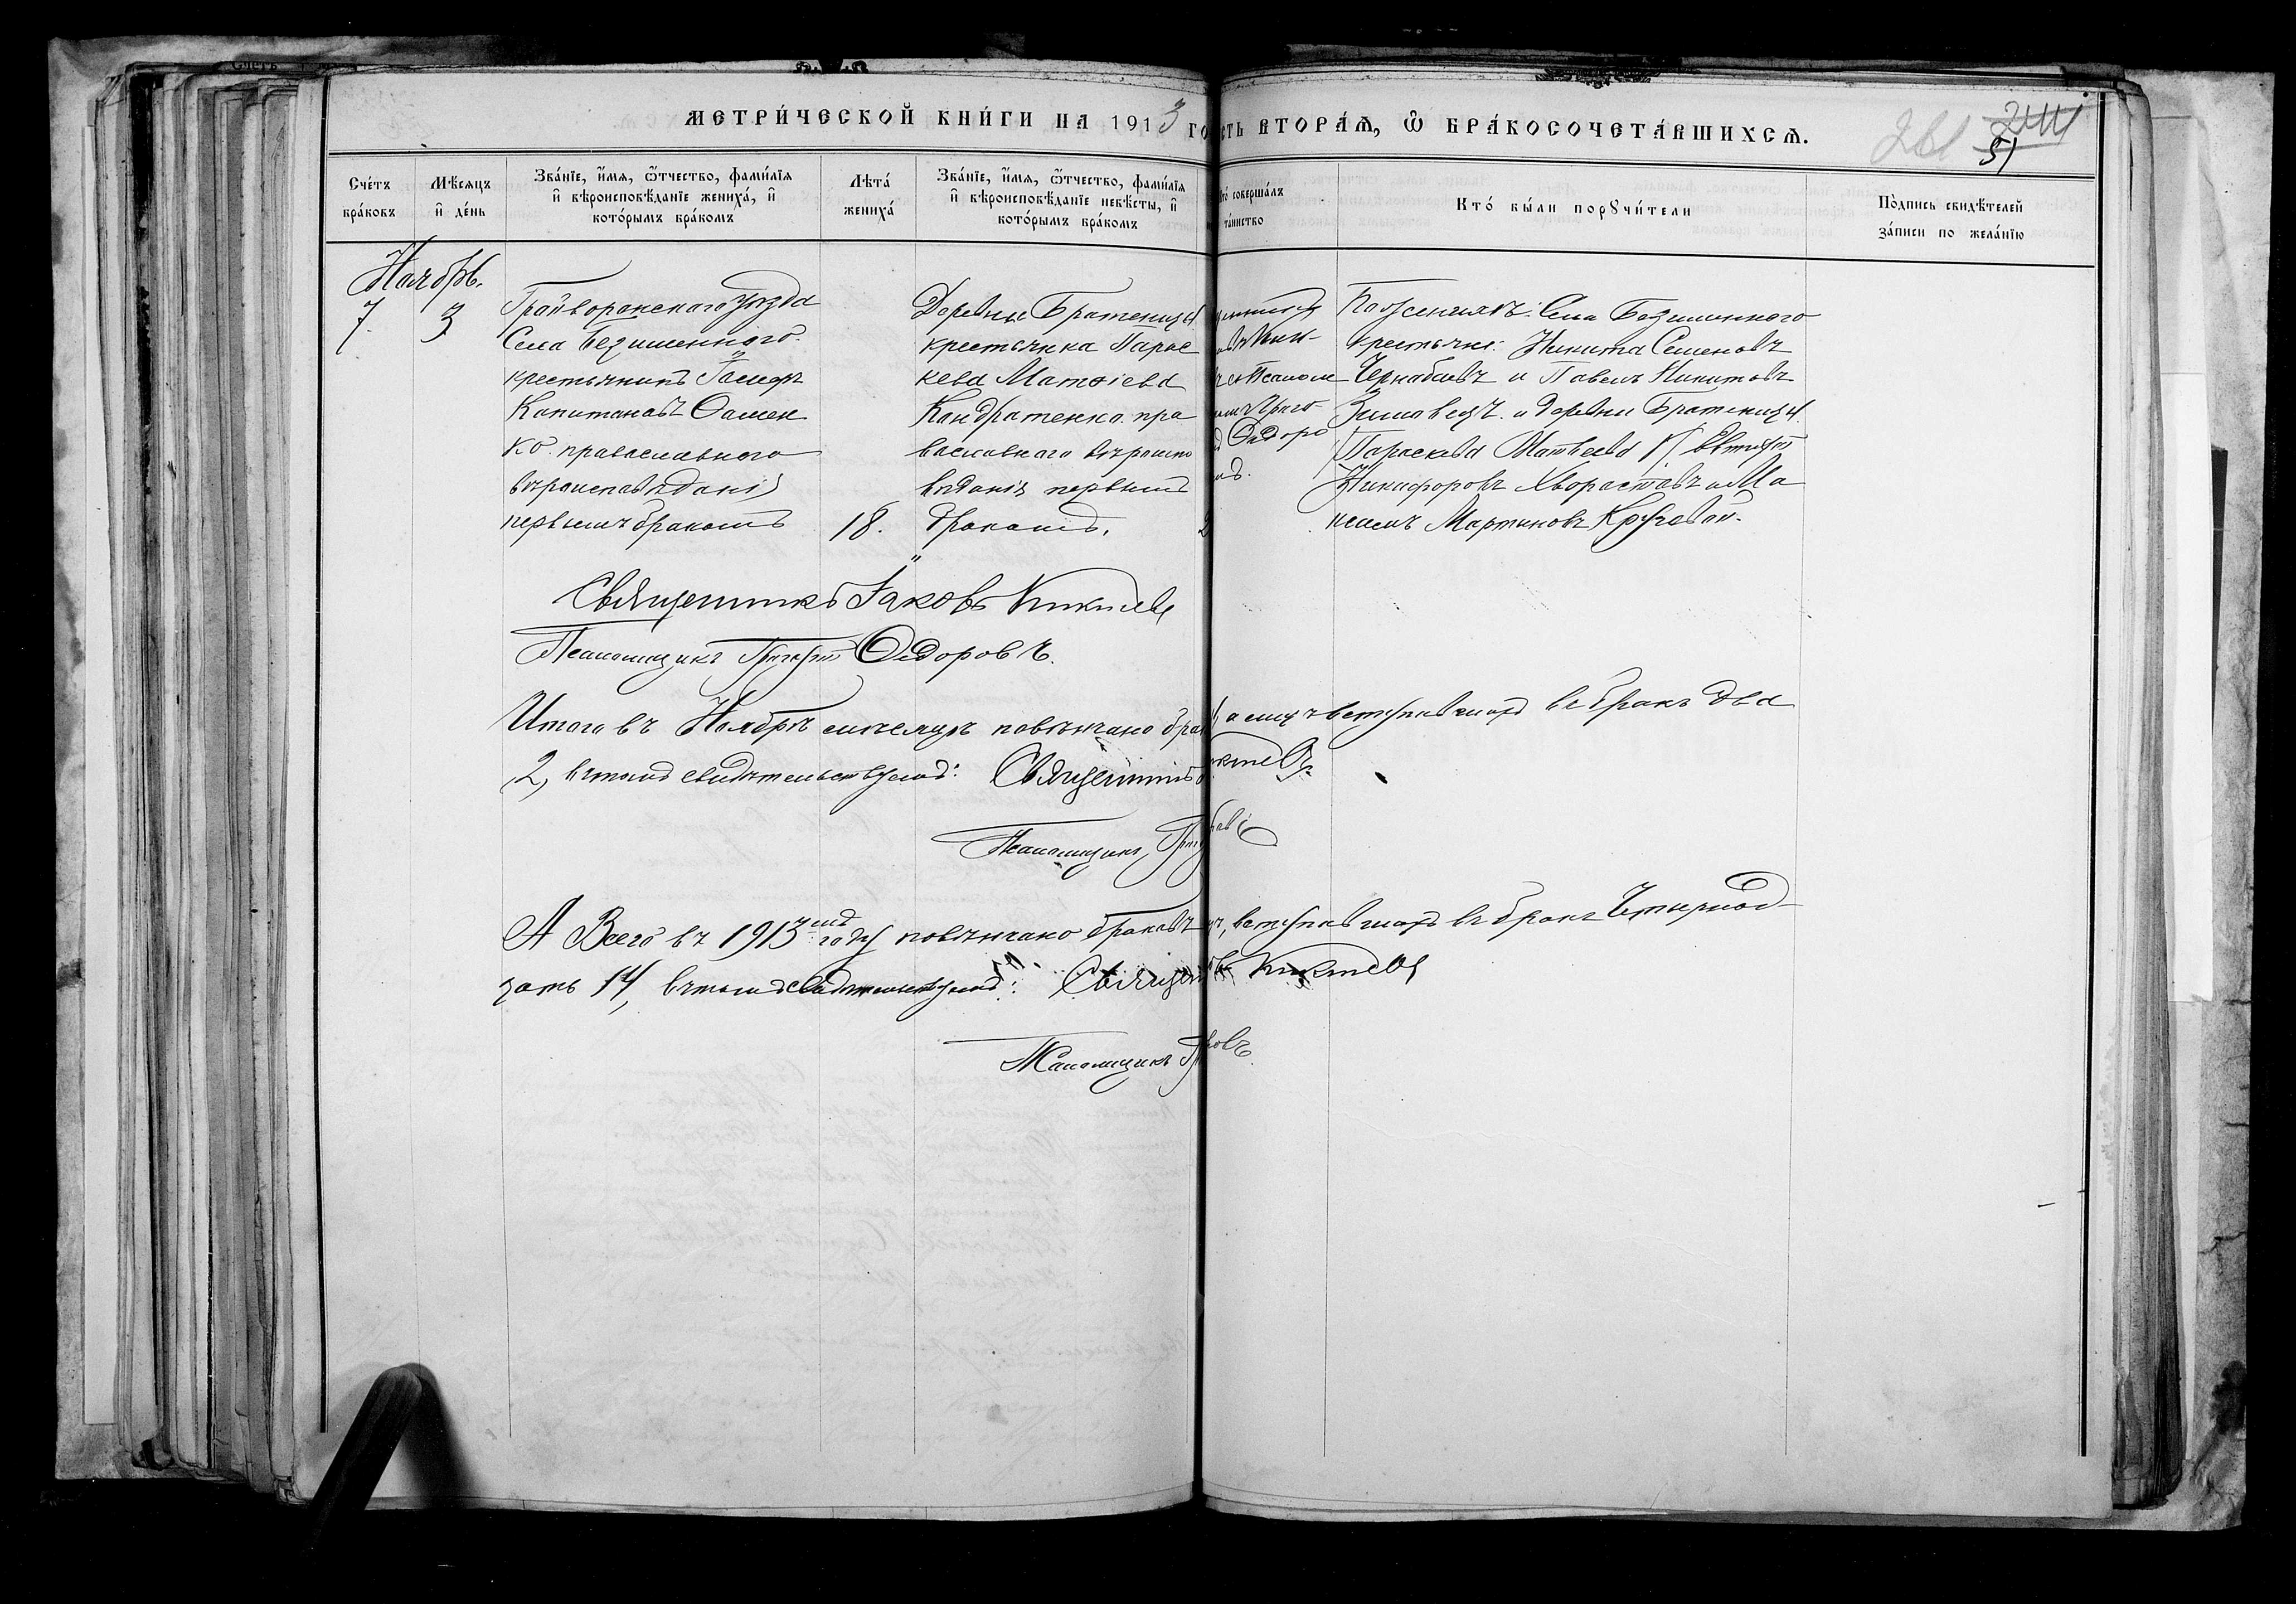 МЕТРИ́ЧЕСКОЙ КНИ́ГИ НА 1913 ГО
СТЬ ВТОРА́Ѧ, Ѿ БРА́КОСОЧЕТА́ВШИХСѦ.
51
Сче́тъ бра́ковъ
Мѣ́сяцъ и҆ де́нь
Зва́нїе, и҆́мѧ, ѻ҆́тчество, фами́лїѧ
и҆ вѣроисповѣ́данїе жениха́, и҆
кото́рымъ бра́комъ
Лѣта́ жениха́
Зва́нїе, и҆́мѧ, ѻ҆́тчество, фами́лїѧ
и҆ вѣроисповѣ́данїе невѣ́сты, и҆
кото́рымъ бра́комъ
то́ соверша́лъ
та́инство
Кто́ бы́ли порꙋчи́тели
По́дпись свидѣ́телей
за́писи по жела́нїю
Ноябрь.
7.
3
Грайворонскаго Уѣзда
Села Безименного
крестьянинъ Іосифъ
Капитоновъ Фомен
ко. православного
вѣроисповѣданія
первымъ бракомъ
18.
Деревни Братеницы
крестьянка Парас
кева Матѳіева
Кондратенко пра
вославнаго вѣроиспо
вѣданія первымъ
бракомъ.
Ѳедоро
По женихѣ: Села Безименного
крестьяне: Никита Семеновъ
Чернабаевъ и Павелъ Никитовъ
Зимовецъ. и деревни Братеницы
Никифоровъ Хворостовъ и Ма
Мартиновъ
Священникъ Іаковъ
Псаломщикъ Григорій Ѳедоровъ.
Итого въ Ноябрѣ мѣсяцѣ повѣнчано бра
вступившихъ въ бракъ два
2, въ томъ свидѣтельствуемъ: Священникъ
Псаломщикъ Григ
А Всего въ 1913мъ году повѣнчано браковъ
вступившихъ въ бракъ Четырнад-
цать 14, въ томъ свидѣтельствуемъ: Священ
Псаломщикъ Гр
ровъ